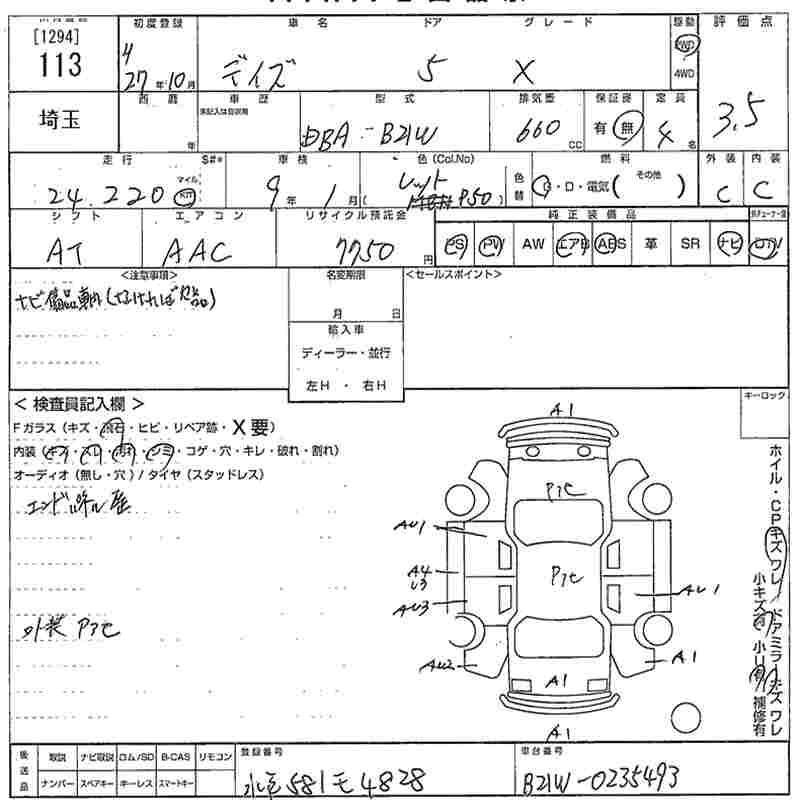 [1294]
113
初度登録
車名
ドア
グレード
駆動
評価点
H
27年10月
デイズ
5
X
2WD
4WD
埼玉
西暦
年
車歴
未記入は自家用
型式
DBA-B21W
排気量
660
CC
保証書
有・無
定員
4
名
3.5
走行
S#*
24,220
マイル
km
車検
9年1月
色(Col.No)
レッド
P50)
色替
燃料
G・D・電気( その他 )
外装
C
内装
C
シフト
AT
エアコン
AAC
リサイクル預託金
7750
円
純正装備品
PS
PW
AW
エアB
ABS
革
SR
ナビ
DTV
<注意事項>
ナビ備品車内(なければ欠品)
名変期限
月 日
輸入車
ディーラー・並行
左H・右H
<セールスポイント>
<検査員記入欄>
Fガラス(キズ・飛石・ヒビ・リペア跡・X要)
内装(キズ・スレ・汚れ・シミ・コゲ・穴・キレ・破れ・割れ)
オーディオ(無し・穴)/タイヤ(スタッドレス)
外装 Pアセ
キーロック
ホイル・CPキズワレ/ドアミラーキズワレ
小キズ有 小U有 補修有
A1
Pアセ
AU1
A4
U3
Pアセ
AU1
AU3
AU2
A1
A1
A1
後送品
取説
ナビ取説
ロム/SD
B-CAS
リモコン
ナンバー
スペアキー
キーレス
スマートキー
登録番号
581モ4828
車台番号
B21W-0235493